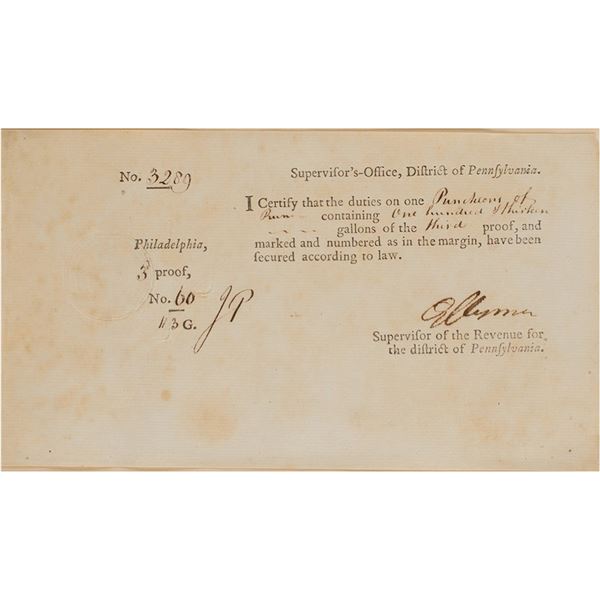 No. 3289
Supervisor's-Office, Diſtrict of Pennſylvania.
I Certify that the duties on one Puncheons of
Rum containing One hundred & thirteen
gallons of the third proof, and
marked and numbered as in the margin, have been
ſecured according to law.
Philadelphia,
3 proof,
No. 60
113 G.
JP
GClymer
Supervisor of the Revenue for
the diſtrict of Pennſylvania.